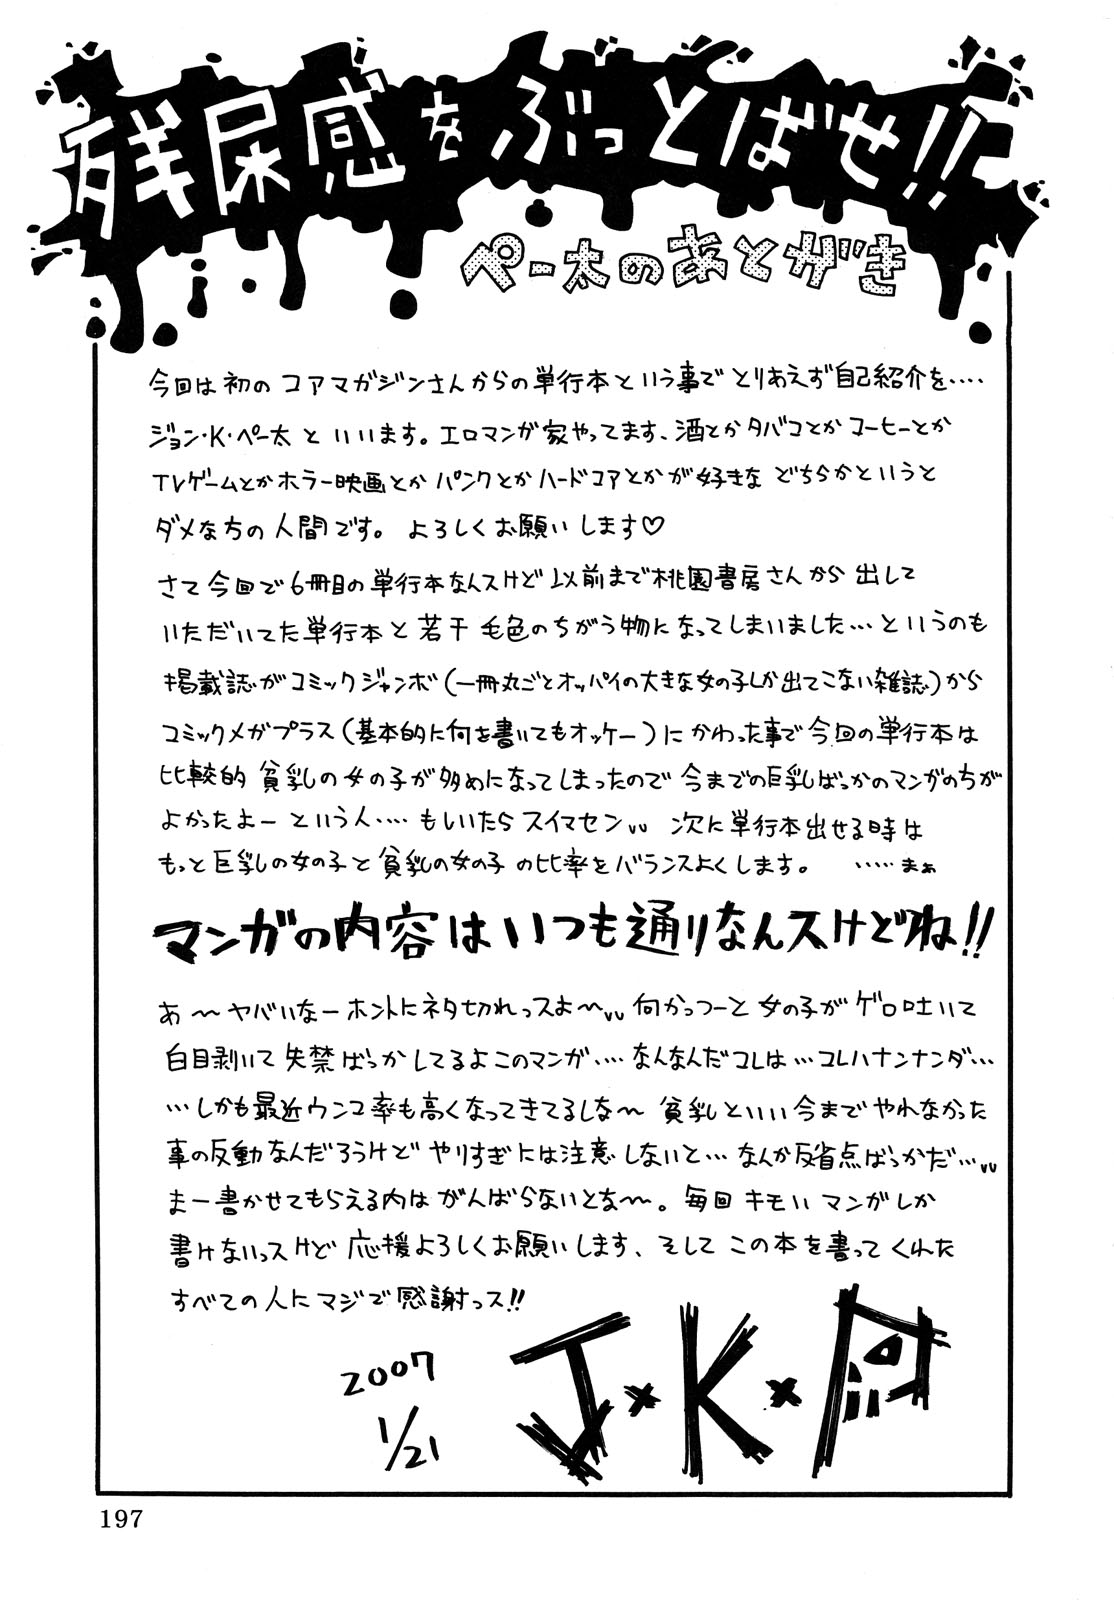 残尿感をぶっとばせ!!
ペー太のあとがき
今回は初の コアマガジンさんからの単行本という事で とりあえず自己紹介を‥‥
ジョン・K・ペー太 と いいます。エロマンガ家やってます、酒とかタバコとか コーヒーとか
TVゲームとか ホラー映画とか パンクとか ハードコアとかが好きな どちらかというと
ダメな方の 人間です。 よろしくお願いします♡
さて 今回で 6冊目の 単行本なんスけど 以前まで桃園書房さんから 出して
いただいてた単行本と 若干 毛色のちがう物になってしまいました… というのも
掲載誌がコミックジャンボ(一冊丸ごとオッパイの大きな女の子しか出てこない雑誌)から
コミックメガプラス(基本的に何を書いてもオッケー)に かわった事で 今回の単行本は
比較的 貧乳の女の子が多めになってしまったので 今までの巨乳ばっかのマンガのちが
よかったよー という人‥‥ もしいたら スイマセン 次に単行本出せる時は
もっと巨乳の女の子と 貧乳の女の子 の比率をバランスよくします。 ‥‥‥まぁ
マンガの内容はいつも通りなんスけどね!!
あ〜 ヤバいなー ホントにネタ切れっスよ〜 何かっつーと 女の子が ゲロ吐いて
白目剥いて 失禁ばっかしてるよこのマンガ‥‥ なんなんだコレは…コレハナンナンダ…
…しかも最近ウンコ率も高くなってきてるしな〜 貧乳といい 今まで やれなかった
事の反動なんだろうけど やりすぎには注意 しないと… なんか反省点ばっかだ…
まー書かせてもらえる内は がんばらないとな〜。毎回 キモい マンガしか
書けないっスけど 応援よろしくお願いします、そして この本を書って くれた
すべての人に マジで 感謝っス!!
2007
1/21
J×K×P
197